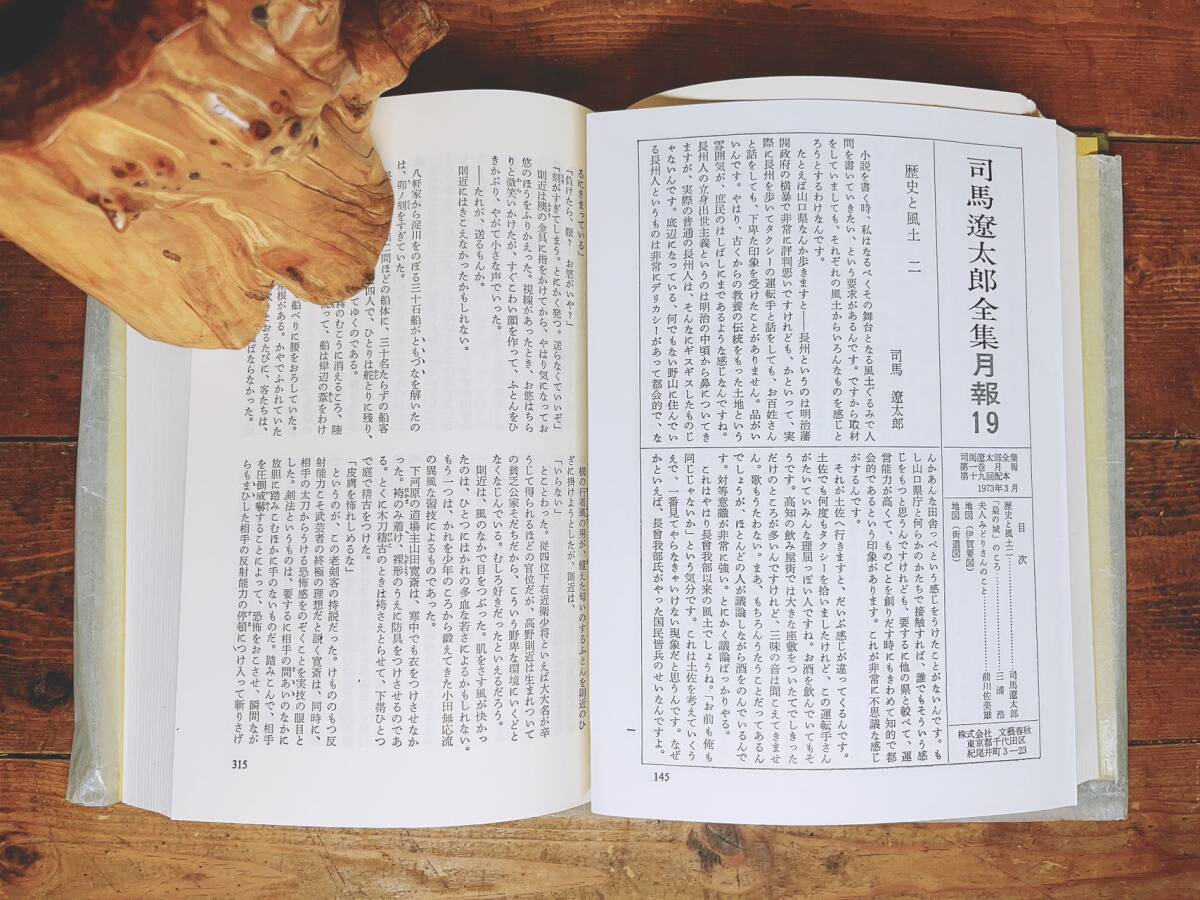 司馬遼太郎全集月報19
司馬遼太郎全集
第一巻 月報
第十九回配本
1973年3月
目次
歴史と風土 二……司馬遼太郎
「梟の城」のころ……三浦 浩
夫人みどりさんのこと……前川佐美雄
地図(伊賀要図)
地図(街道図)
株式会社 文藝春秋
東京都千代田区
紀尾井町3―23
歴史と風土 二
司馬 遼太郎
小説を書く時、私はなるべくその舞台となる風土ぐるみで人
間を書いていきたい、という要求があるんです。ですから取材
をしていましても、それぞれの風土からいろんなものを感じと
ろうとするわけなんです。
たとえば山口県なんか歩きますと――長州というのは明治藩
閥政府の横暴で非常に評判悪いですけれども、かといって、実
際に長州を歩いてタクシーの運転手と話をしても、お百姓さん
と話をしても、下卑た印象を受けたことがありません。品がい
いんです。やはり、古くからの教養の伝統をもった土地という
雰囲気が、庶民のはしばしにまであるような感じなんですね。
長州人の立身出世主義というのは明治の中頃から鼻についてき
ますが、実際の普通の長州人は、そんなにギスギスしたものじ
ゃないんです。底辺になっている、何でもない野山に住んでい
る長州人というものは非常にデリカシーがあって都会的で、な
んかあんな田舎っぺという感じをうけたことがないんです。も
し山口県庁と何らかのかたちで接触すれば、誰でもそういう感
じをもつと思うんですけれども、要するに他の県と較べて、運
営能力が高くて、ものごとを創りだす時にもきわめて知的で都
会的であるという印象があります。これが非常に不思議な感じ
がするんです。
それが土佐へ行きますと、だいぶ感じが違ってくるんです。
土佐でも何度もタクシーを拾いましたけれど、この運転手さん
がたいていみんな理屈っぽい人ですね。お酒を飲んでいてもそ
うです。高知の飲み屋街では大きな座敷をついたてでしきった
だけのところが多いんですけれど、三味の音は聞こえてきませ
ん。歌もうたわない。まあ、もちろんうたうことだってあるん
でしょうが、ほとんどの人が議論しながら酒をのんでいるんで
す。対等意識が非常に強い。とにかく議論ばっかりやる。
これはやはり長曾我部以来の風土でしょうね。「お前も俺も
同じじゃないか」という気分です。これは土佐を考えていくう
えで、一番見てやらなきゃいけない現象だと思うんです。なぜ
かといえば、長曾我部氏がやった国民皆兵のせいなんですよ。
一
145
るにきまっている」
「負けたら、厭? お悠がいや?」
「刻がすぎてしまう。とにかく発つ。送らなくていいぞ」
則近は襖の金具に指をかけてから、やはり気になってお
悠のほうをふりかえった。視線があったとき、お悠はちら
りと微笑いかけたが、すぐこわい顔を作って、ふとんをひ
きかぶり、やがて小さな声でいった。
――たれが、送るもんか。
則近にはきこえなかったかもしれない。
八軒家から淀川をのぼる三十石船がともづなを解いたの
は、卯ノ刻をすぎていた。
二間ほどの船体に、三十名たらずの船客
四人で、ひとりは舵とりに残り、
てゆくのである。
霧のむこうに消えるころ、陸
って、船は岸辺の葦をわけ
船べりに腰をおろしていた。
根がある。かやでふかれていた
吹きとおるたびに、客たちは、
ばならなかった。
横の行者風の男が、饐えた匂いのするふとんを則近のひ
ざに掛けようとしたが、則近は、
「いらない」
とことわった。従四位下右近衛少将といえば大大名が辛
うじて得られるほどの官位だが、高野則近は生まれついて
の貧乏公家そだちだから、こういう野卑な環境にいくどと
なくなじんでいる。むしろ好きだったといえるだろう。
則近は、風のなかで目をつぶった。肌をさす風が快かっ
たのは、ひとつにはかれの多血な若さによるかもしれない。
もう一つは、かれを少年のころから鍛えてきた小田無応流
の異風な習技によるものであった。
下河原の道場主山田寛斎は、寒中でも衣をつけさせなか
った。袴のみ着け、裸形のうえに防具をつけさせるのであ
る。ひとくに木刀稽古のときは袴さえとらせて、下帯ひとつ
で庭で稽古をつけた。
「皮膚を怖れしめるな」
というのが、この老剣客の持説だった。けもののもつ反
射能力こそ武芸者の終極の理想だと説く寛斎は、同時に、
相手の太刀からうける恐怖感をのぞくことを実技の眼目と
した。剣法というものは、要するに相手の間あいのなかに
放胆に踏みこむほかに手のないものだ。踏みこんで、相手
を圧倒威嚇することによって、恐怖をおこさせ、瞬間なが
らもまひした相手の反射能力の停頓につけ入って斬りさげ
315